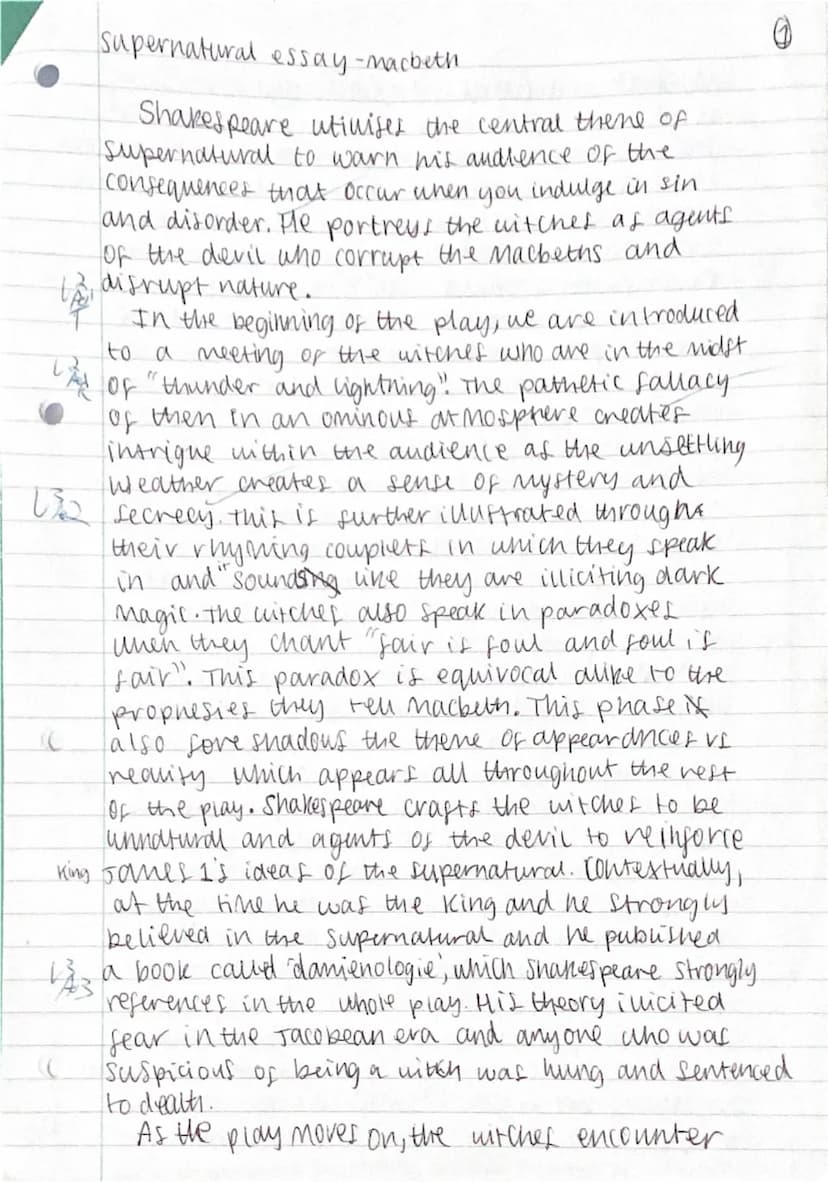 ①
Supernatural essay - macbeth
Shakespeare utiuises the central theme of
supernatural to warn his audience of the
consequences that occur when you indulge in sin
and disorder. He portreys the witches as agents
of the devil who corrupt the Macbeths and
disrupt nature.
In the beginning of the play, we are introduced
to a meeting of the witches who are in the midst
of "thunder and lightning". The pathetic fallacy
of them in an ominous atmosphere creates
intrigue within the audience as the unsettling
weather creates a sense of mystery and
secrecy. This is further illustrated through
their rhyming couplets in which they speak
in and sound like they are illiciting dark
magic. The witches also speak in paradoxes
when they chant "fair is foul and foul is
fair". This paradox is equivocal alike to the
prophesies they tell Macbeth. This phase
also foreshadows the theme of appearances vs
reality which appears all throughout the rest
of the play. Shakespeare crafts the witches to be
unnatural and agents of the devil to reinforce
King James 1's ideas of the supernatural. Contextually,
at the time he was the King and he strongly
believed in the supernatural and he published
a book called 'damienologie', which Shakespeare strongly
references in the whole play. His theory illicited
fear in the Jacobean era and anyone who was
suspicious of being a witch was hung and sentenced
to death.
As the play moves on, the witches encounter